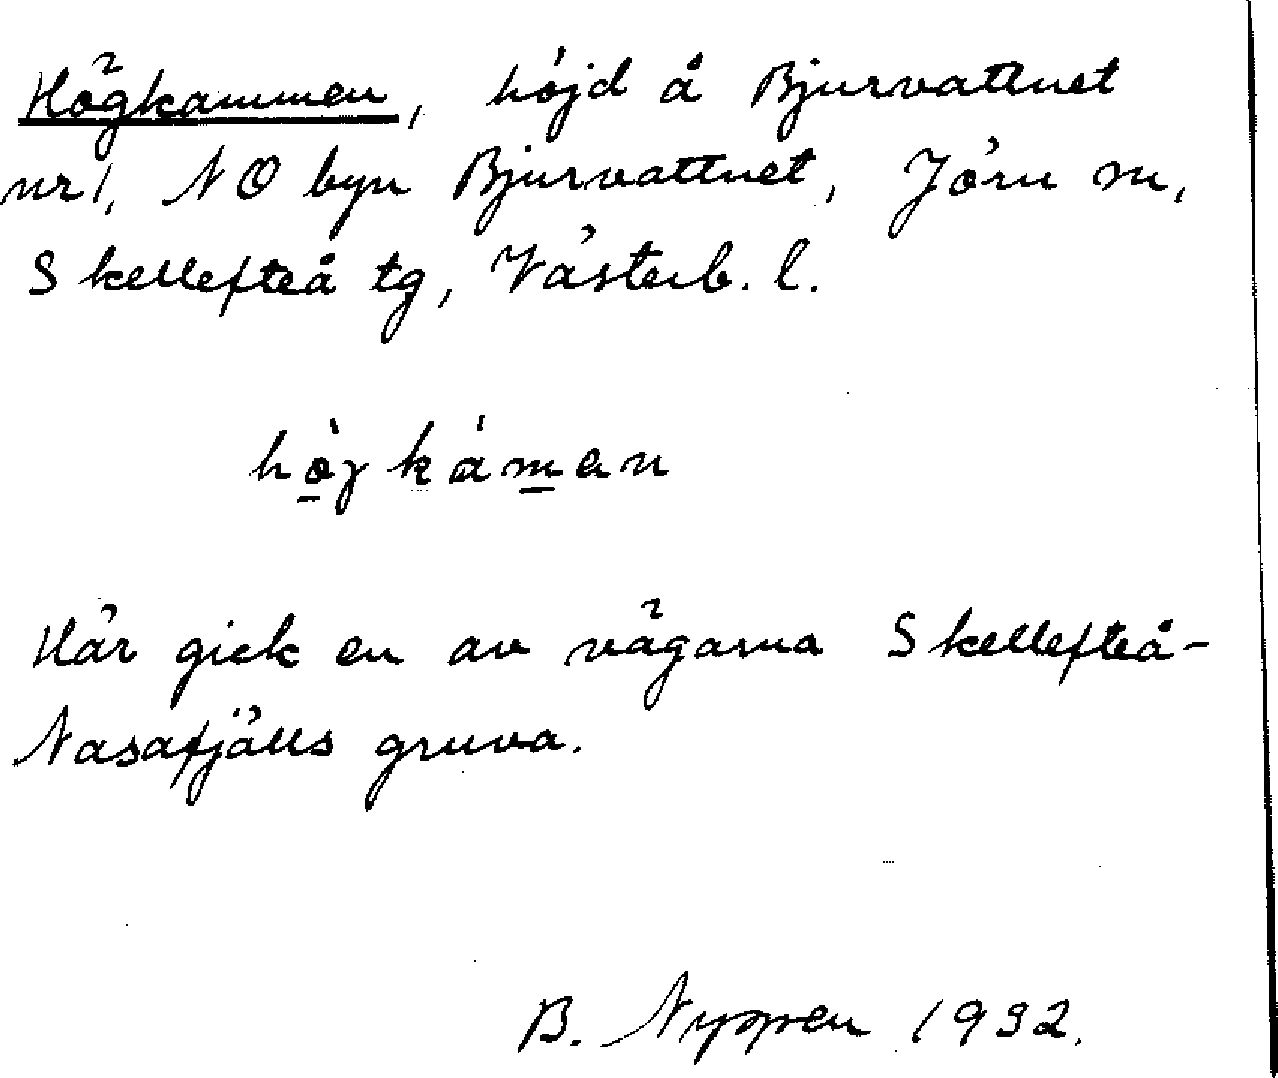 Högkammen, höjd å Bjurvattnet
nr 1, NO byn Bjurvattnet, Jörn sn,
Skellefteå tg, Västerb. l.
hò̱jkámen
Här gick en av vägarna Skellefteå-
Nasafjälls gruva.
B. Nyppen 1932.